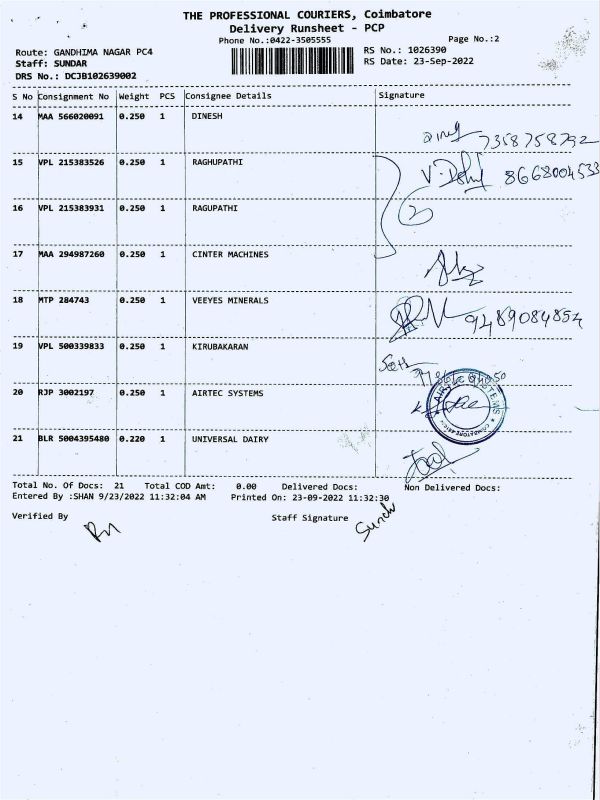 THE PROFESSIONAL COURIERS, Coimbatore
Delivery Runsheet - PCP
Phone No.:0422-3505555
Page No.:2
Route: GANDHIMA NAGAR PC4
RS No.: 1026390
Staff: SUNDAR
RS Date: 23-Sep-2022
DRS No.: DCJB102639002
S No Consignment No Weight PCS Consignee Details Signature
14 MAA 566020091 0.250 1 DINESH
7358758792
15 VPL 215383526 0.250 1 RAGHUPATHI
8668004533
16 VPL 215383931 0.250 1 RAGUPATHI
2
17 MAA 294987260 0.250 1 CINTER MACHINES
18 MTP 284743 0.250 1 VEEYES MINERALS
9489084854
19 VPL 500339833 0.250 1 KIRUBAKARAN
20 RJP 3002197 0.250 1 AIRTEC SYSTEMS
21 BLR 5004395480 0.220 1 UNIVERSAL DAIRY
Total No. Of Docs: 21 Total COD Amt: 0.00 Delivered Docs: Non Delivered Docs:
Entered By :SHAN 9/23/2022 11:32:04 AM Printed On: 23-09-2022 11:32:30
Verified By Staff Signature